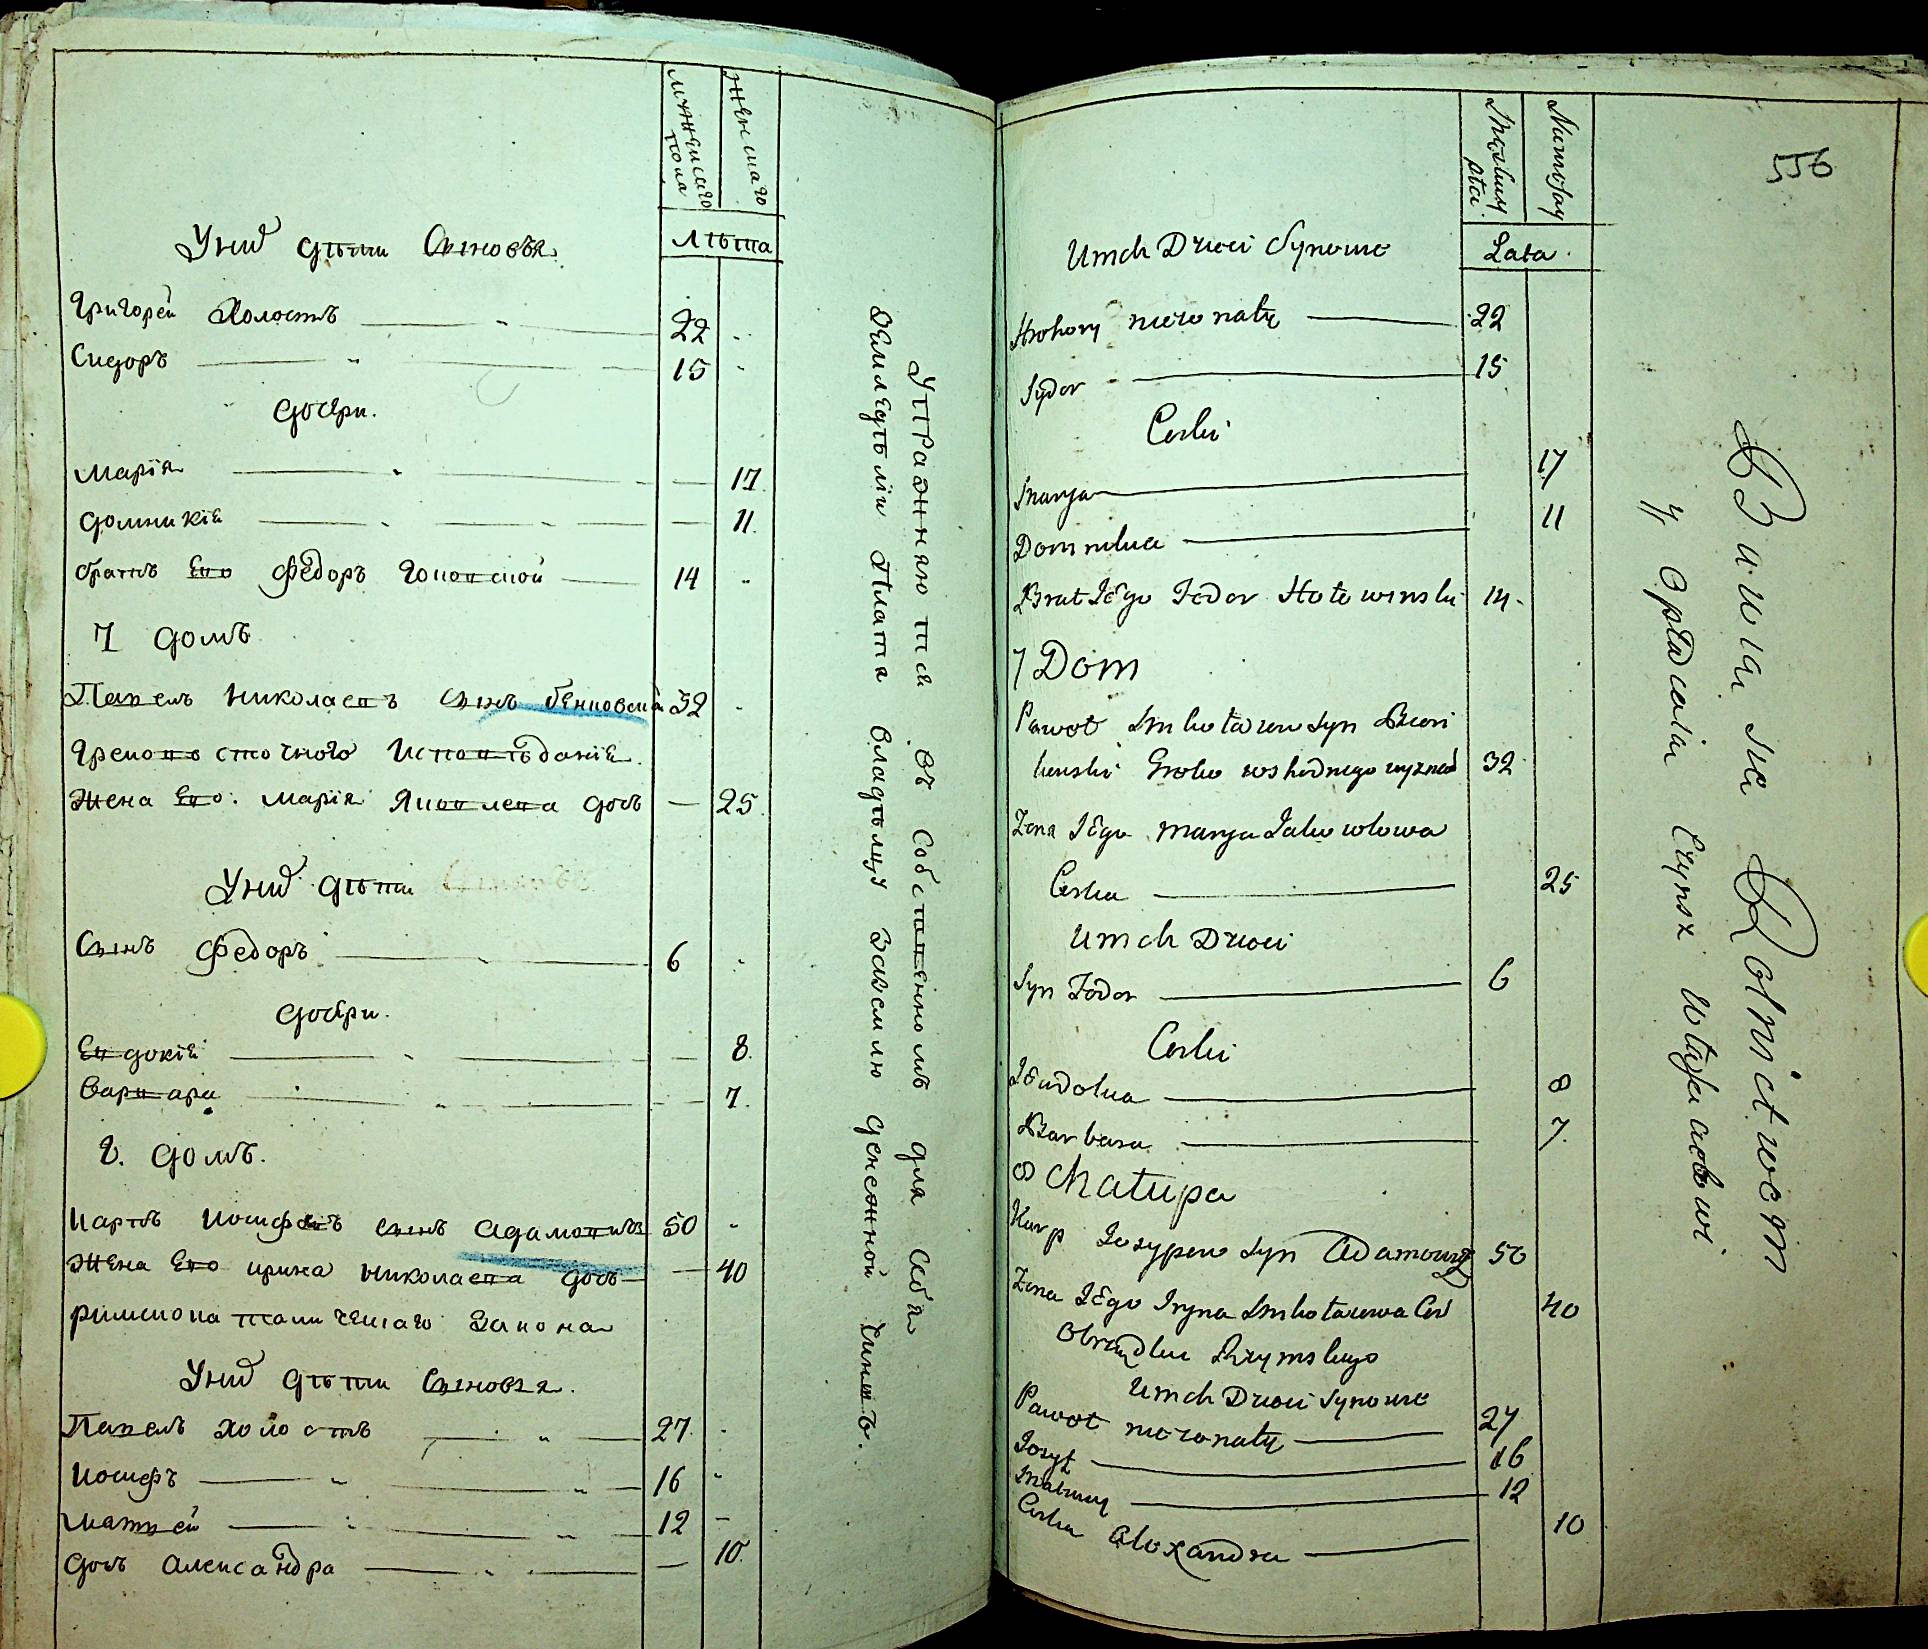 Мужескаго пола
Женскаго
Лѣта
Унихъ дѣти Сыновья
Григорей Холостъ 22
Сидоръ 15
дочери.
Марія 17
домникія 11
братъ Его Федоръ 14
7 домъ
Павелъ Николаевъ сынъ 32
Греко восточного Исповѣданія.
Жена Его Марія Яковлева дочь 25
Унихъ дѣти
Сынъ Федоръ 6
дочери.
Евдокія 8
Варвара 7
8. домъ.
Карпъ Иосифовъ сынъ Адамовичъ 50
Жена Его ирина Николаева дочь 40
римскокатолическаго Закона
Унихъ дѣти Сыновья.
Павелъ холостъ 27
Иосифъ 16
Матвей 12
дочь Александра 10
Упражняются въ Собственномъ для себя
Земледѣліи Платя владѣльцу Заземлю денежной чиншъ.
556
Męskiey płci
Niewiesciey
Lata
Umch Dzieci Synowie
Hrehory niezonaty 22
Sydor 15
Corki
Marya 17
Domnikia 11
Brat Iego Fedor 14
7 Dom
Paweł Mikołaiew Syn
Greko wshodnego wyznań 32
Zona Iego Marya Iakowlowa
Corka 25
Umch Dzieci
Syn Fedor 6
Corki
Iewdokia 8
Barbara 7
8 Chałupa
Karp Iozypow Syn Adamowicz 50
Zona Iego Iryna Mikołaiewa Cor 40
Obrządku Rzymskiego
Umch Dzieci Synowie
Paweł niezonaty 27
Iozyf 16
Matwiey 12
Corka Alexandra 10
Bawią się Rolnictwem
y Opłacaią Czynsz